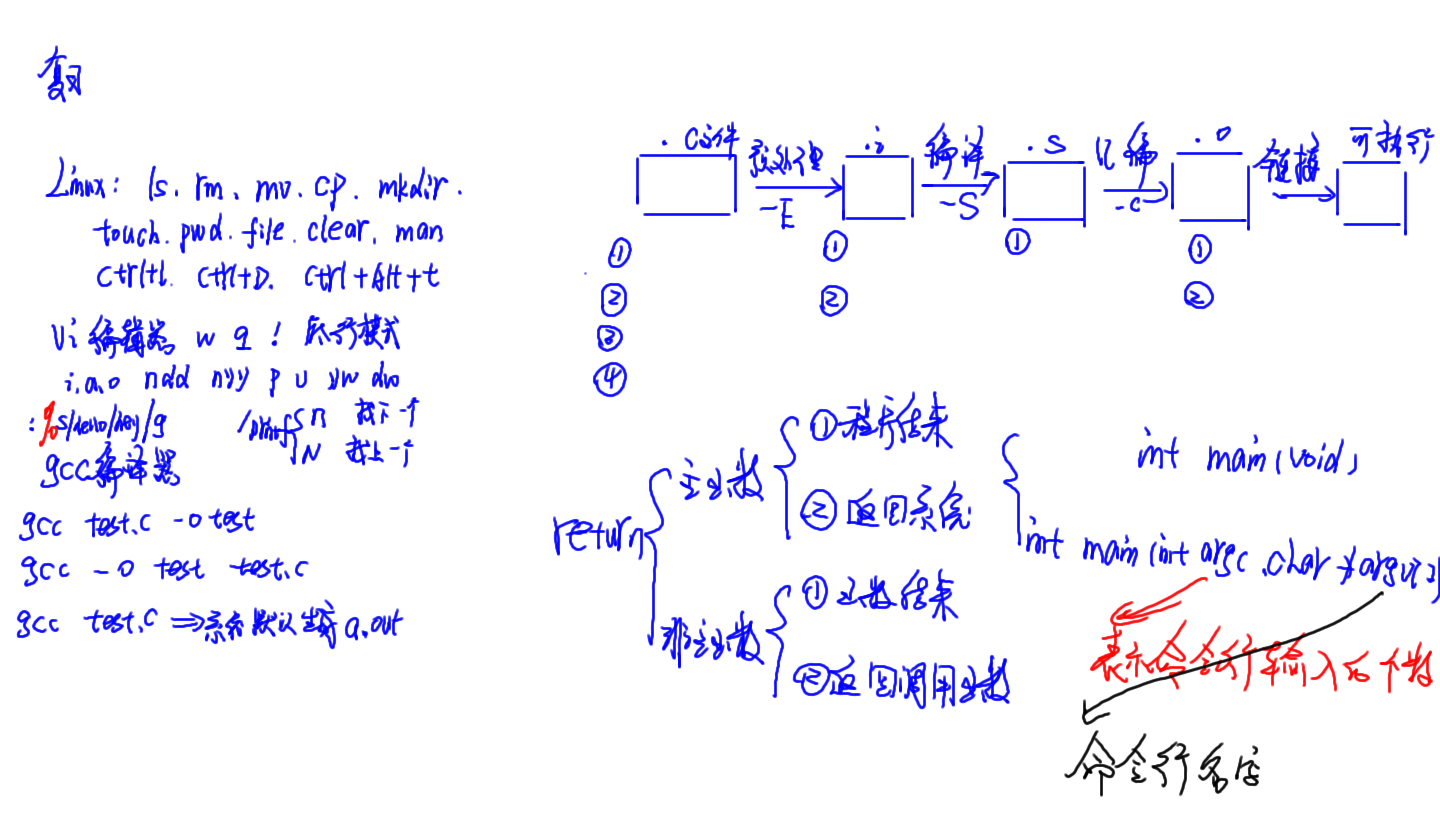 复习
Linux: ls. rm. mv. cp. mkdir.
touch. pwd. file. clear. man
ctrl+l. ctrl+D. ctrl+Alt+t
Vi编辑器 w q ! 底行模式
i.a.o ndd nyy p u yw dw
:%s/hello/hey/g
/printf n 找下一个
N 找上一个
gcc编译器
gcc test.c -o test
gcc -o test test.c
gcc test.c ⇒系统默认生成a.out
.c文件 预处理 .i 编译 .S 汇编 .o 链接 可执行
-E -S -c
① ① ① ①
② ② ②
③
④
return
主函数
①程序结束
②返回系统
非主函数
①函数结束
②返回调用函数
int main(void)
int main(int argc, char *argv[])
表示命令行输入的个数
命令行内容